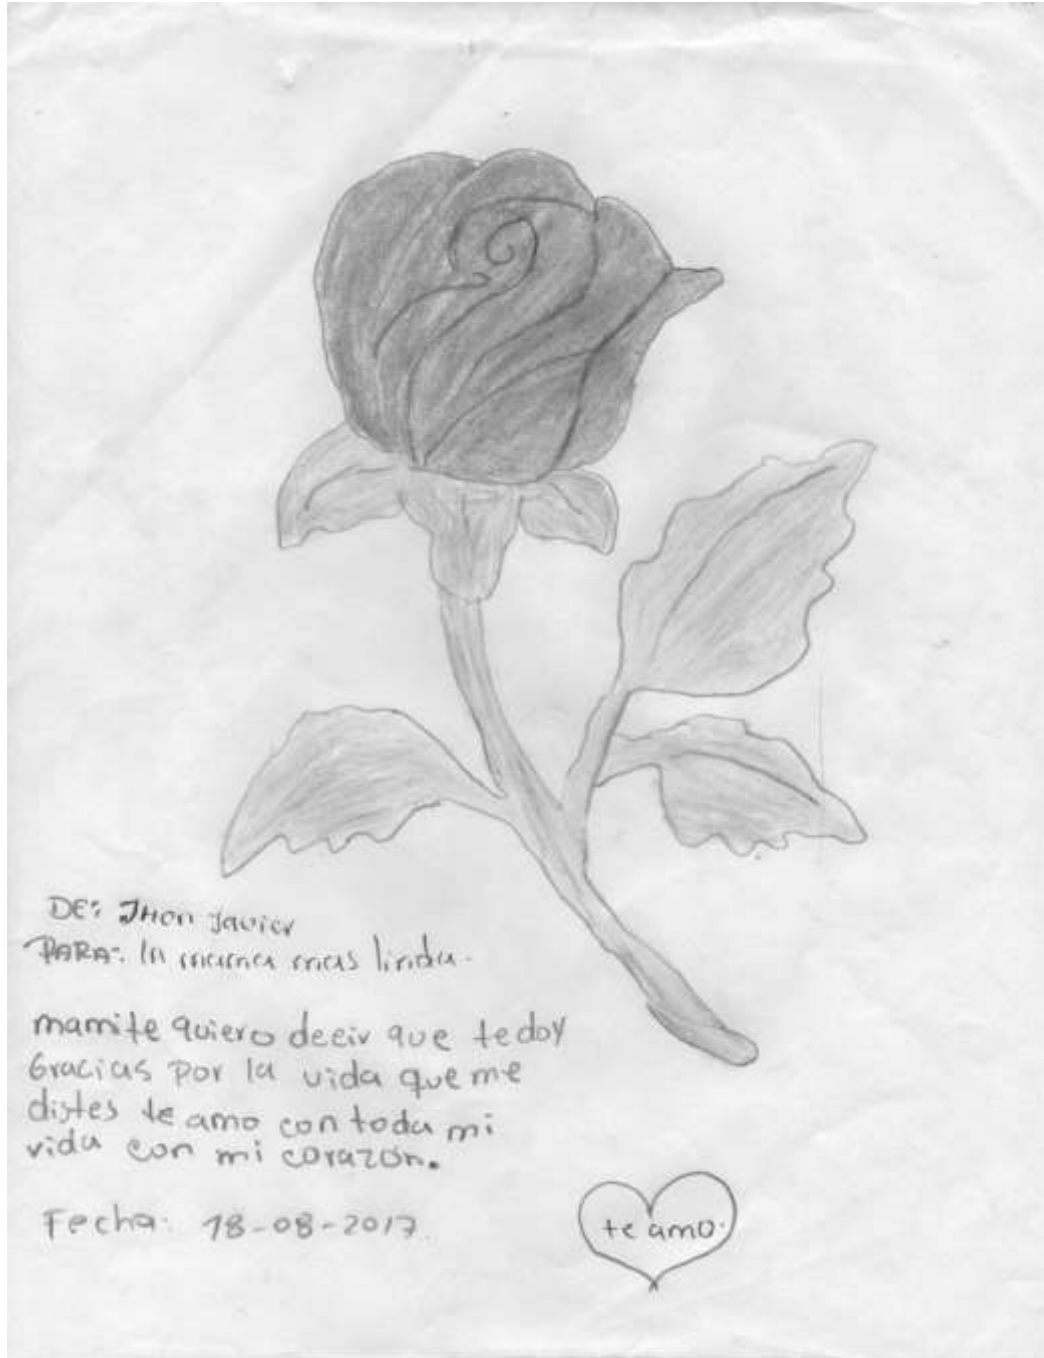 DE: JHon Javier
PARA: la mama mas linda.
mamite quiero decir que te doy
Gracias por la vida que me
distes te amo con toda mi
vida con mi corazón.
Fecha: 18-08-2017.
te amo.